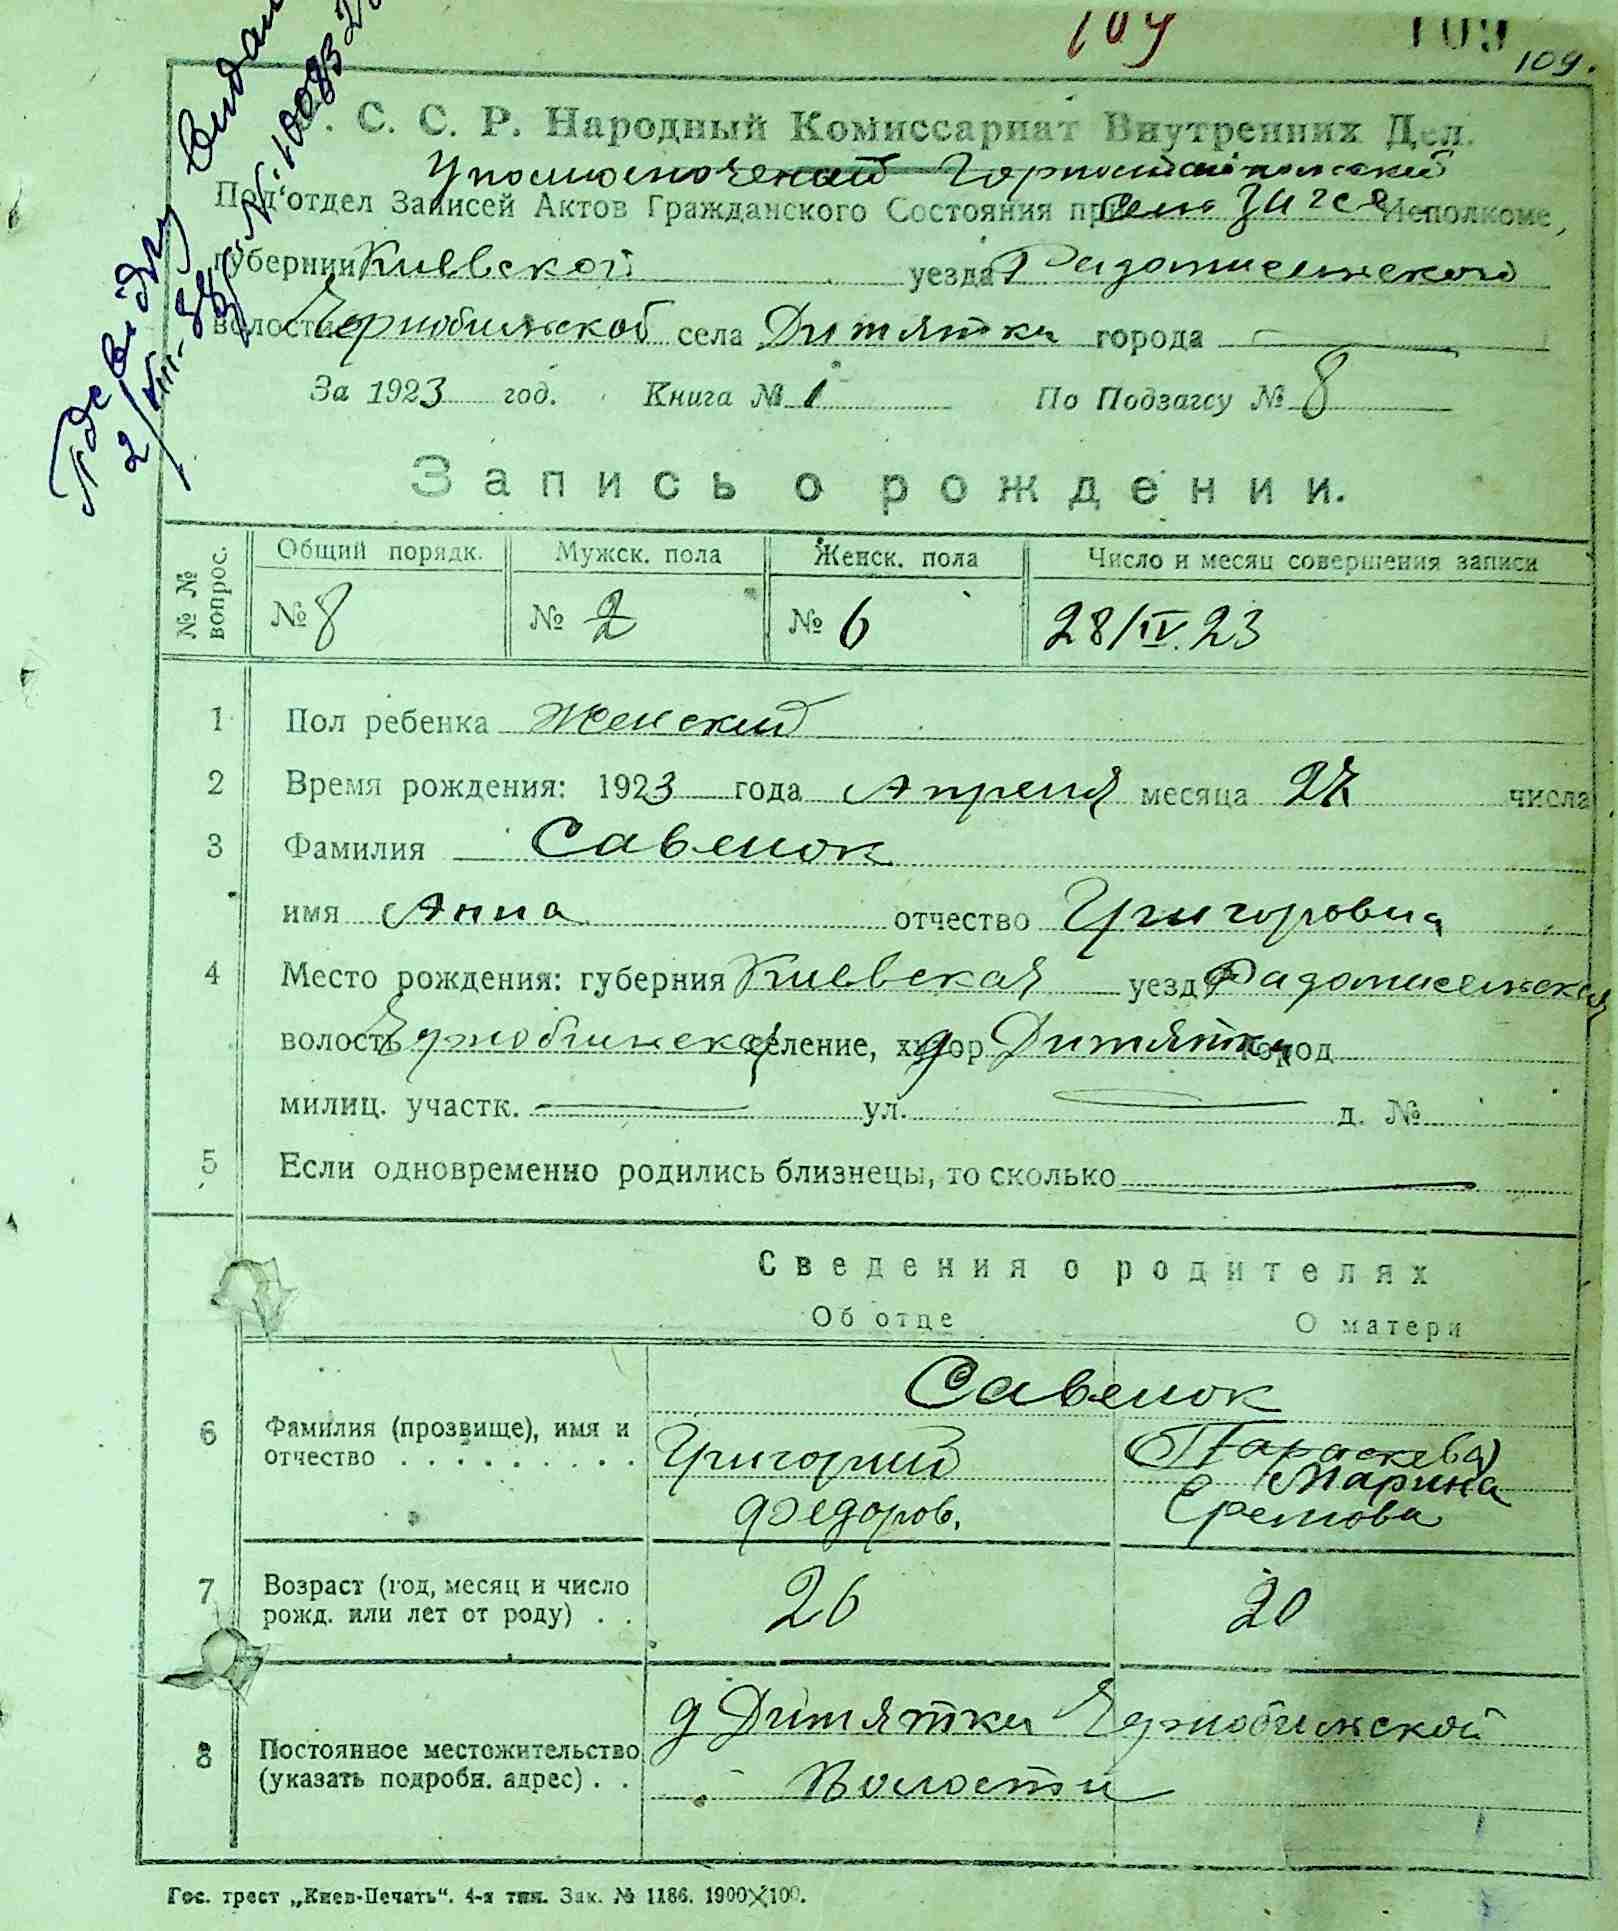 109 109
109.
Видан
№ 10083
Посвідку
2/VIII-38
. С. С. Р. Народный Комиссариат Внутренних Дел.
Уполномоченый Горностайпольский
Под'отдел Записей Актов Гражданского Состояния при ЗАГСе Исполкоме,
губернии Киевской уезда Радомисльского
волости Чорнобильской села Дитятки города
За 1923 год. Книга № 1 По Подзагсу № 8
Запись о рождении.
№№ вопрос. Общий порядк. Мужск. пола Женск. пола Число и месяц совершения записи
№ 8 № 2 № 6 28/IV.23
1 Пол ребенка Женский
2 Время рождения: 1923 года Апреля месяца 27 числа
3 Фамилия Савенок
имя Анна отчество Григоровна
4 Место рождения: губерния Киевская уезд Радомисельская
волость Чорнобильская селение, хутор д Дитятки город
милиц. участк. ул. д. №
5 Если одновременно родились близнецы, то сколько
Сведения о родителях
Об отце О матери
Савенок
6 Фамилия (прозвище), имя и Григорий (Параскева)
отчество Марина
Федоров. Еремова
7 Возраст (год, месяц и число 26 20
рожд. или лет от роду)
д Дитятки Чорнобильской
8 Постоянное местожительство
(указать подробн. адрес) Волости
Гос. трест „Киев-Печать“. 4-я тип. Зак. № 1186. 1900×100.